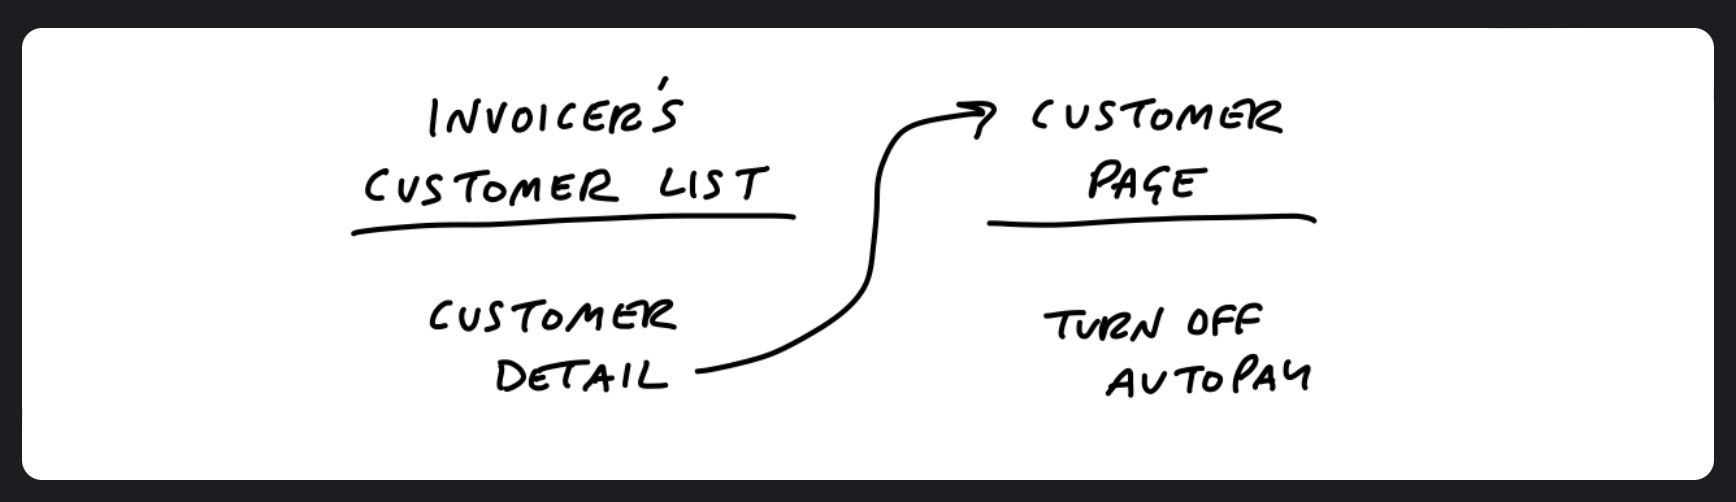 INVOICER'S
CUSTOMER LIST
CUSTOMER
DETAIL
CUSTOMER
PAGE
TURN OFF
AUTOPAY